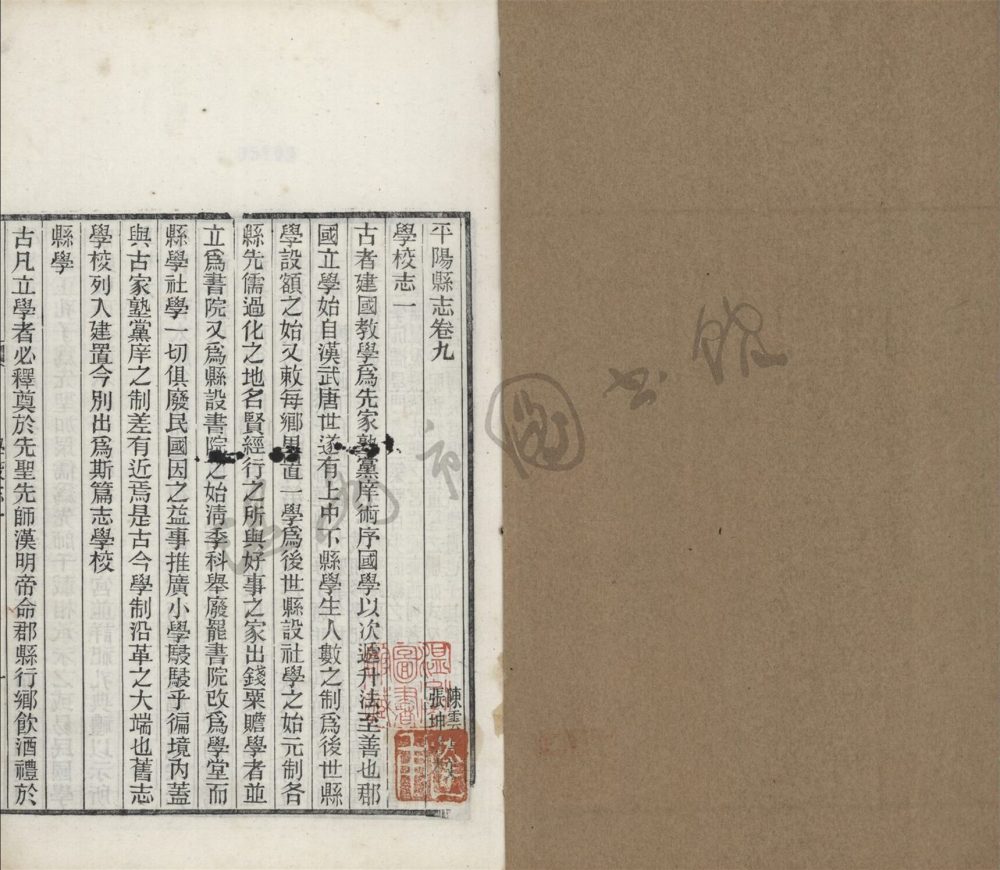 平陽縣志卷九
學校志一
陳雲
張坤
古者建國教學爲先家塾黨庠術序國學以次遞升法至善也郡
國立學始自漢武唐世遂有上中下縣學生人數之制爲後世縣
學設額之始又敕每鄉里置一學爲後世縣設社學之始元制各
縣先儒過化之地名賢經行之所與好事之家出錢粟贍學者並
立爲書院又爲縣設書院之始淸季科舉廢罷書院改爲學堂而
縣學社學一切俱廢民國因之益事推廣小學駸駸乎徧境內蓋
與古家塾黨庠之制差有近焉是古今學制沿革之大端也舊志
學校列入建置今別出爲斯篇志學校
縣學
古凡立學者必釋奠於先聖先師漢明帝命郡縣行鄉飲酒禮於
圖書館